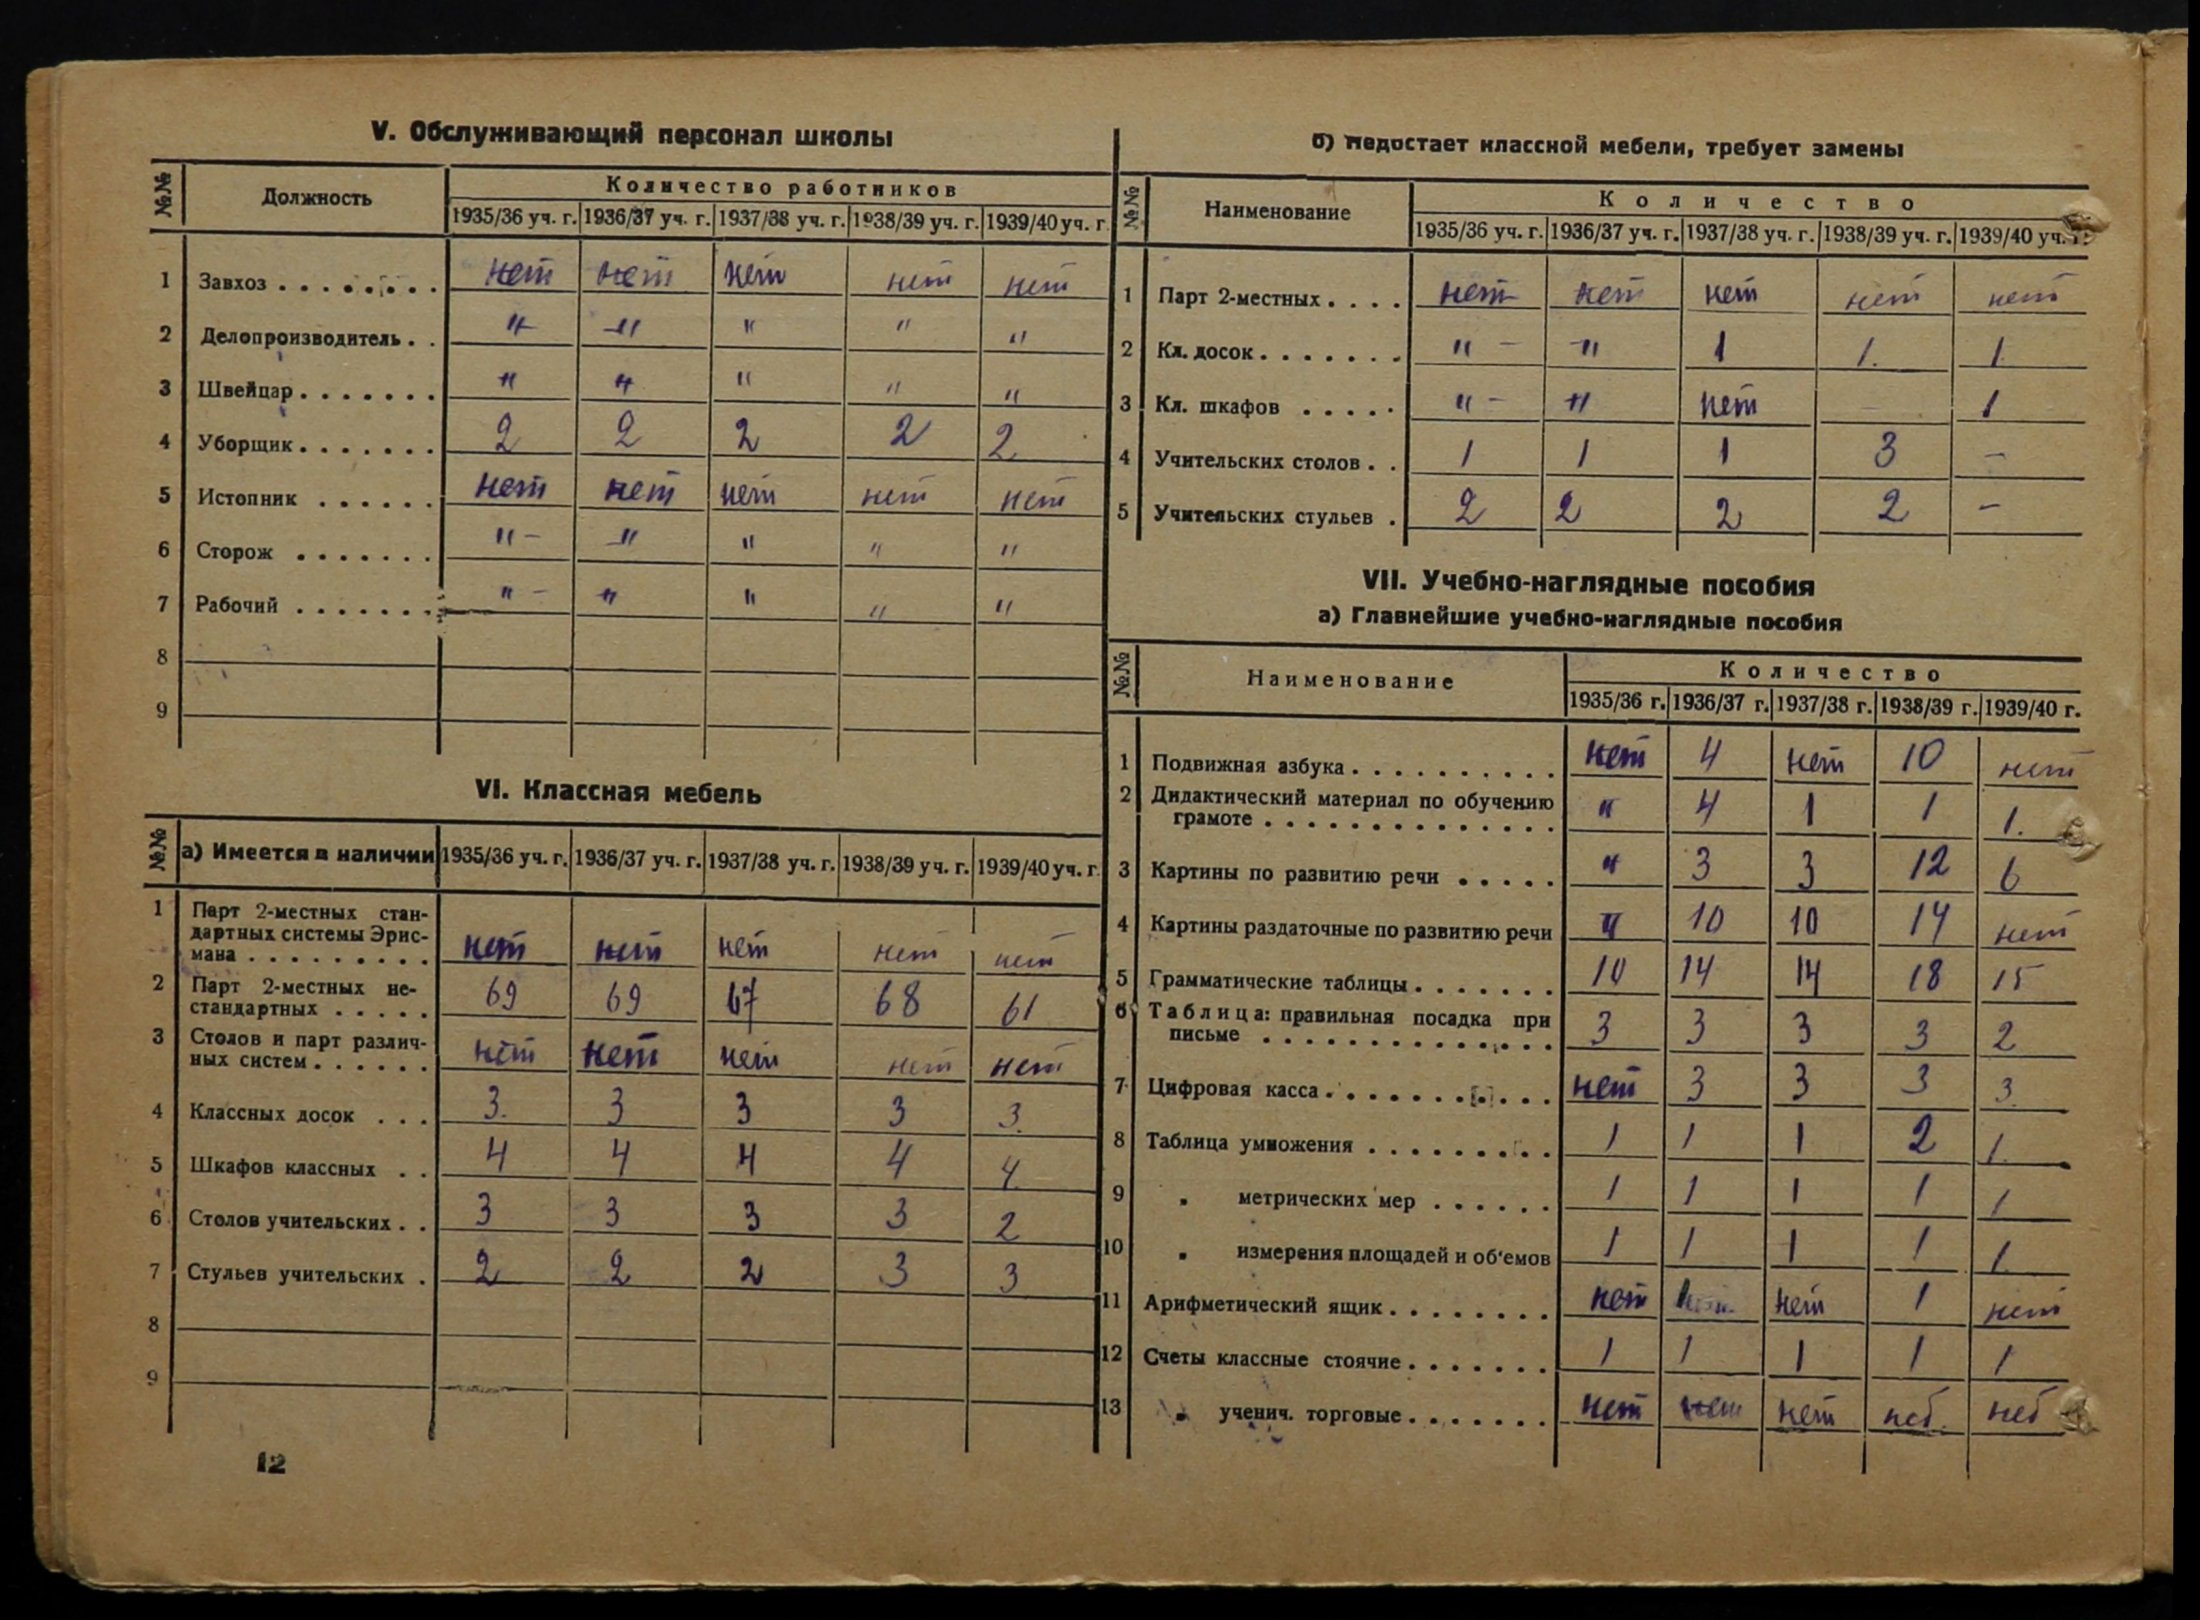 V. Обслуживающий персонал школы
№№ Должность Количество работников
1935/36 уч. г. 1936/37 уч. г. 1937/38 уч. г. 1938/39 уч. г. 1939/40 уч. г
1 Завхоз . . . . . . . . нет нет нет нет нет
2 Делопроизводитель . . " " " " "
3 Швейцар . . . . . . . " " " " "
4 Уборщик . . . . . . . 2 2 2 2 2
5 Истопник . . . . . . нет нет нет нет нет
6 Сторож . . . . . . . " - " " " "
7 Рабочий . . . . . . . " - " " " "
8
9
VI. Классная мебель
№№ а) Имеется в наличии 1935/36 уч. г. 1936/37 уч. г. 1937/38 уч. г. 1938/39 уч. г. 1939/40 уч. г
1 Парт 2-местных стан-
дартных системы Эрис-
мана . . . . . . . . . нет нет нет нет нет
2 Парт 2-местных не-
стандартных . . . . . 69 69 67 68 61
3 Столов и парт различ-
ных систем . . . . . . нет нет нет нет нет
4 Классных досок . . . 3. 3 3 3 3.
5 Шкафов классных . . 4 4 4 4 4
6 Столов учительских . . 3 3 3 3 2
7 Стульев учительских . 2 2 2 3 3
8
9
12
б) Недостает классной мебели, требует замены
№№ Наименование Количество
1935/36 уч. г. 1936/37 уч. г. 1937/38 уч. г. 1938/39 уч. г. 1939/40 уч. г.
1 Парт 2-местных . . . . нет нет нет нет нет
2 Кл. досок . . . . . . . " - " 1 1. 1.
3 Кл. шкафов . . . . . " - " нет - 1
4 Учительских столов . . 1 1 1 3 -
5 Учительских стульев . 2 2 2 2 -
VII. Учебно-наглядные пособия
а) Главнейшие учебно-наглядные пособия
№№ Наименование Количество
1935/36 г. 1936/37 г. 1937/38 г. 1938/39 г. 1939/40 г.
1 Подвижная азбука . . . . . . . . . . нет 4 нет 10 нет
2 Дидактический материал по обучению
грамоте . . . . . . . . . . . . . . " 4 1 1 1.
3 Картины по развитию речи . . . . . " 3 3 12 6
4 Картины раздаточные по развитию речи " 10 10 14 нет
5 Грамматические таблицы . . . . . . . 10 14 14 18 15
6 Таблица: правильная посадка при
письме . . . . . . . . . . . . . . 3 3 3 3 2
7 Цифровая касса . . . . . . . . . . . нет 3 3 3 3.
8 Таблица умножения . . . . . . . . . 1 1 1 2 1.
9 " метрических мер . . . . . . 1 1 1 1 1
10 " измерения площадей и об'емов 1 1 1 1 1.
11 Арифметический ящик . . . . . . . . нет нет 1 нет
12 Счеты классные стоячие . . . . . . . 1 1 1 1 1
13 " ученич. торговые . . . . . . . нет нет нет нет нет